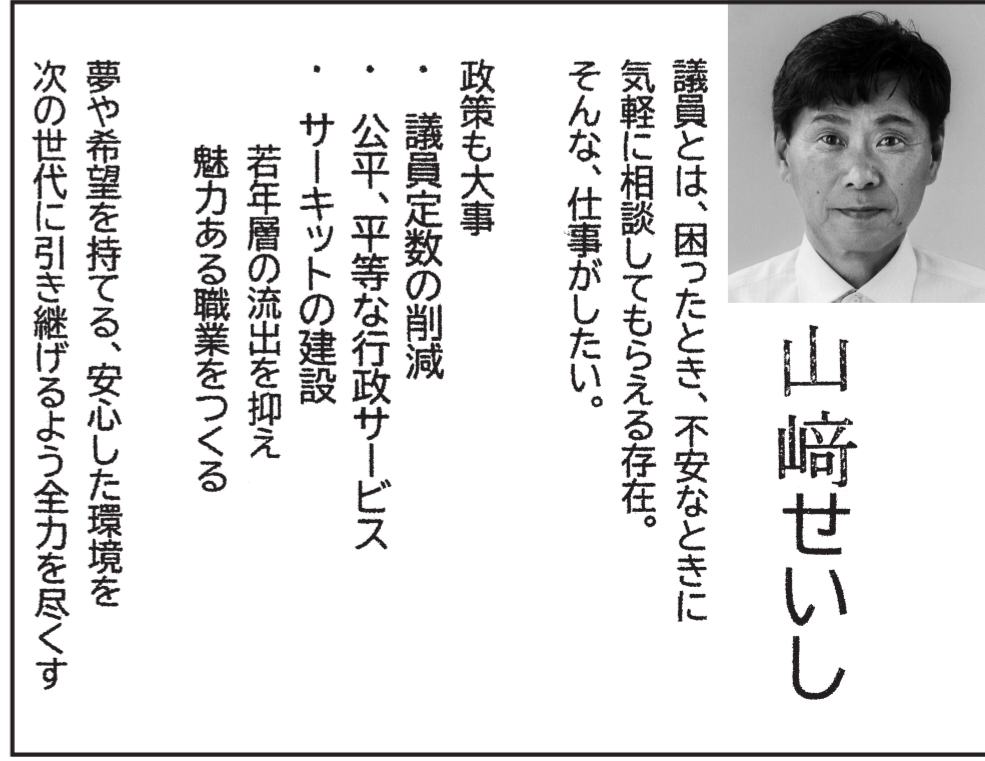 山﨑せいし
議員とは、困ったとき、不安なときに
気軽に相談してもらえる存在。
そんな、仕事がしたい。
政策も大事
・ 議員定数の削減
・ 公平、平等な行政サービス
・ サーキットの建設
若年層の流出を抑え
魅力ある職業をつくる
夢や希望を持てる、安心した環境を
次の世代に引き継げるよう全力を尽くす